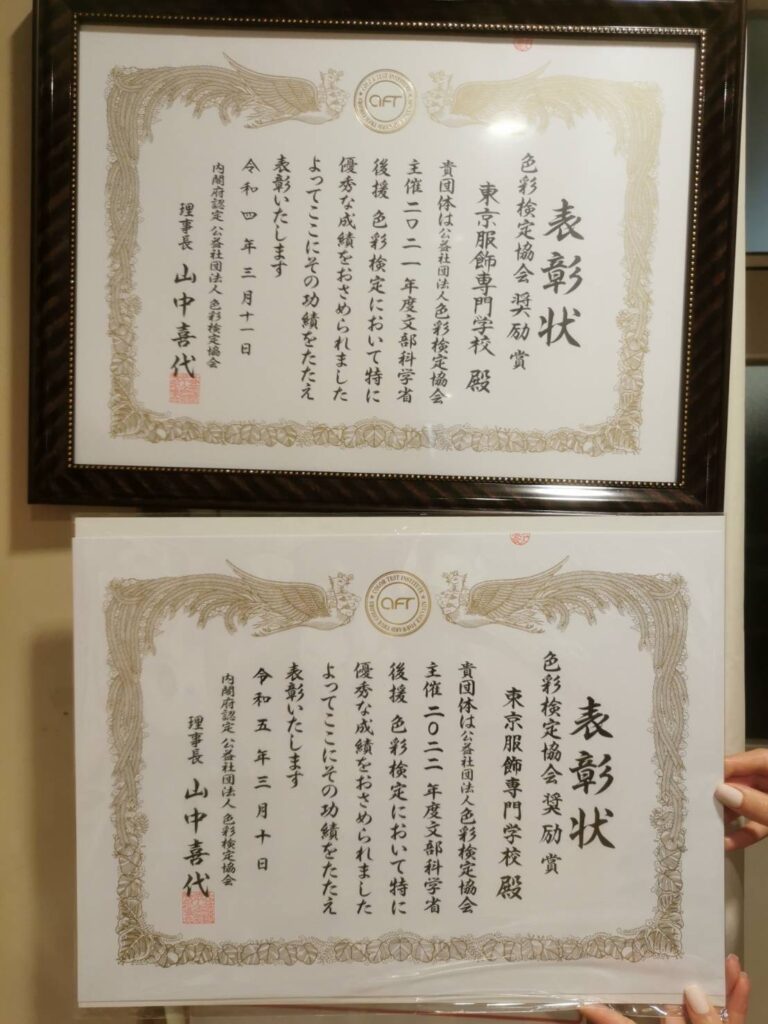 COLOR TEST INSTITUTE
AFT
表彰状
色彩検定協会 奨励賞
東京服飾専門学校 殿
貴団体は公益社団法人色彩検定協会
主催二〇二一年度文部科学省
後援 色彩検定において特に
優秀な成績をおさめられました
よってここにその功績をたたえ
表彰いたします
令和四年三月十一日
内閣府認定 公益社団法人 色彩検定協会
理事長 山中喜代
COLOR TEST INSTITUTE
AFT
表彰状
色彩検定協会 奨励賞
東京服飾専門学校 殿
貴団体は公益社団法人色彩検定協会
主催二〇二二年度文部科学省
後援 色彩検定において特に
優秀な成績をおさめられました
よってここにその功績をたたえ
表彰いたします
令和五年三月十日
内閣府認定 公益社団法人 色彩検定協会
理事長 山中喜代